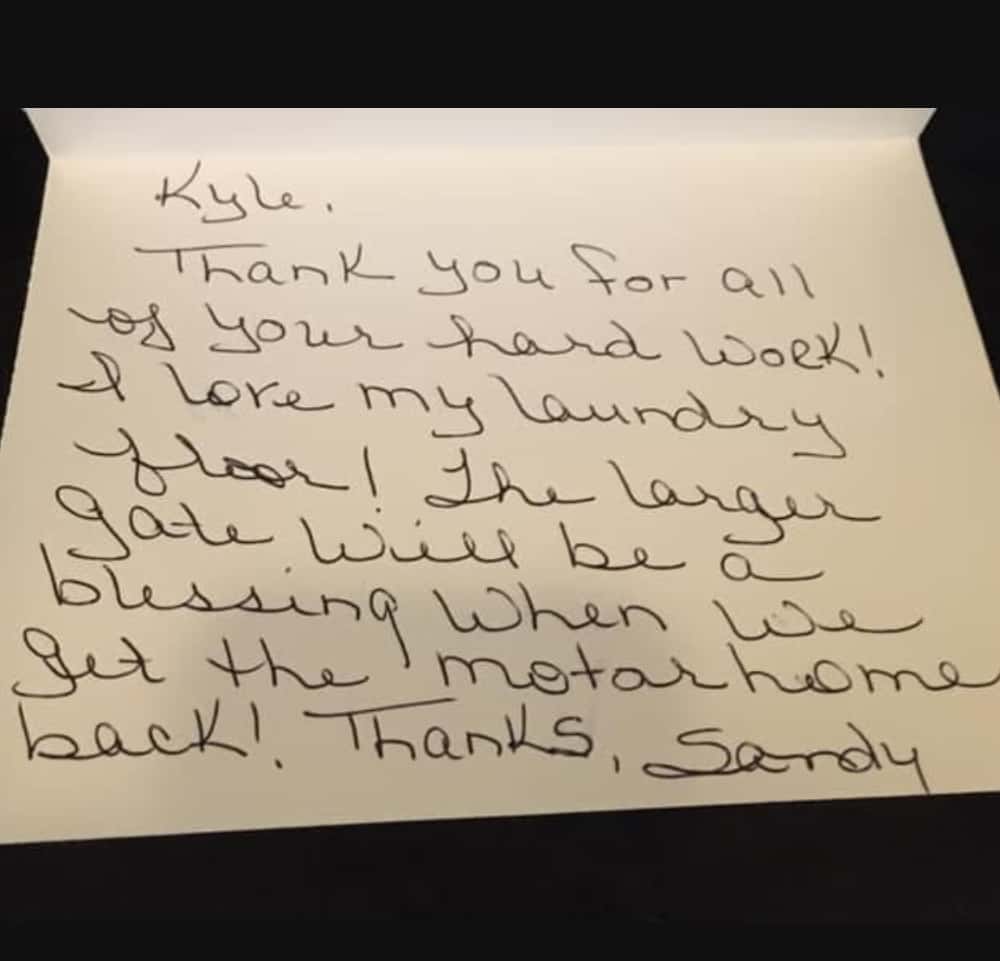 Kyle.
Thank you for all
of your hard work!
I love my laundry
floor! The larger
gate will be a
blessing when we
get the motorhome
back! Thanks, Sandy